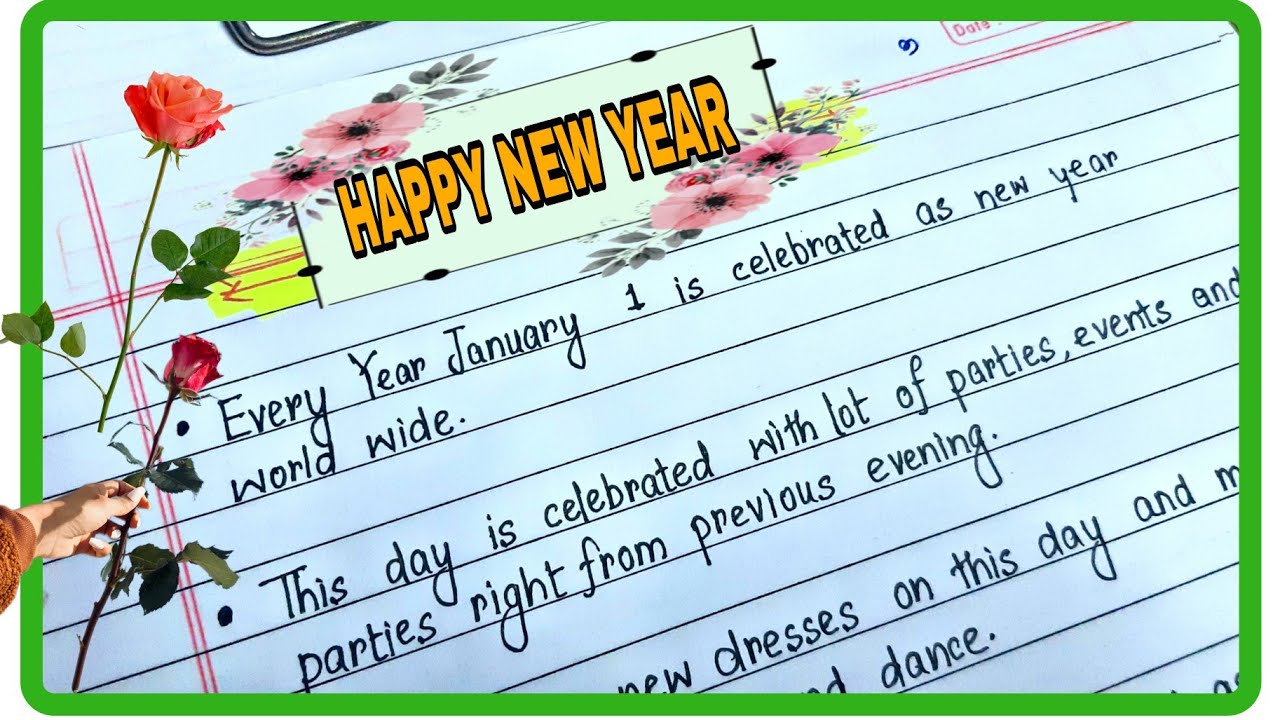 Date :
HAPPY NEW YEAR
• Every Year January 1 is celebrated as new year
world wide.
• This day is celebrated with lot of parties, events and
parties right from previous evening.
new dresses on this day and
dance.